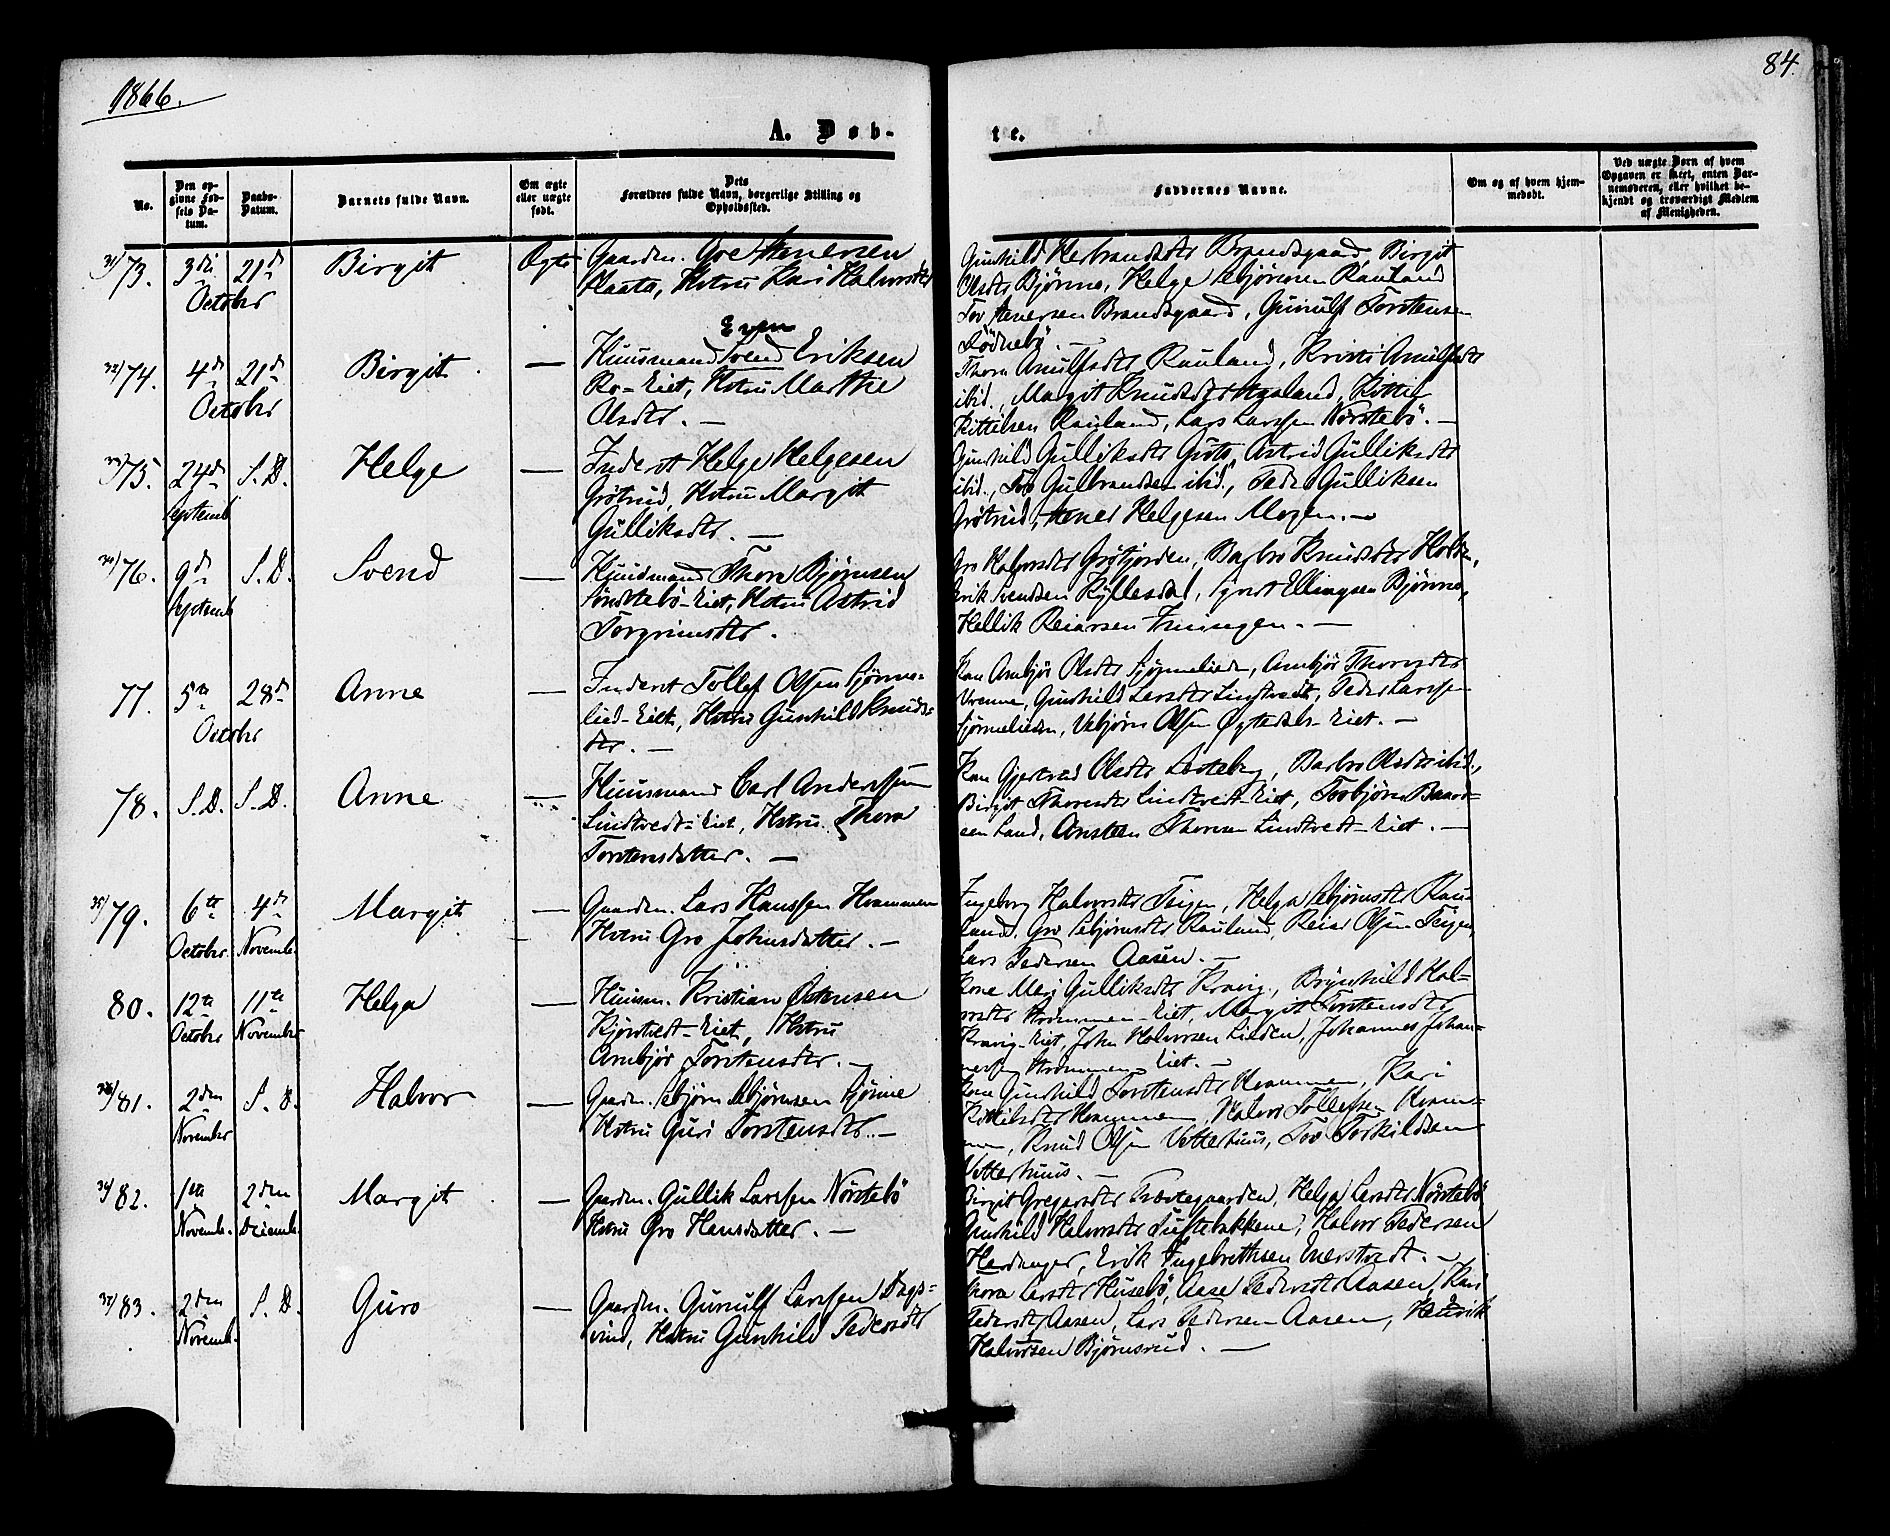 1866.
84.
A. Døb-
te.
No.
Den op-
givne Fød-
sels Da-
tum.
Daabs-
Datum.
Barnets fulde Navn.
Om ægte
eller uægte
født.
Dets
Forældres fulde Navn, borgerlige Stilling og
Opholdssted.
Faddernes Navne.
Om og af hvem hjem-
medøbt.
Ved uægte Børn af hvem
Opgaven er skeet, enten Bar-
nemoderen, eller hvilket be-
kjendt og troværdigt Medlem
af Menigheden.
31/73. 3die 21de Birgit Ægte Gaardm. Ore Stenersen
October
Plaata, Hstru Kari Halvorsdtr
Gunhild Herbrandsdtr Brandsgaard, Birgit
Olsdtr Bjønne, Helge Sebjørnsen Rauland
Tov Stenersen Brandsgaard, Gunulf Torstensen
Rødnebø. —
32/74. 4de 21de Birgit. — Huusmand Svend Eriksen
Even
October
Ro-Eiet, Hstru Marthe
Olsdtr. —
Thora Arnulfsdtr Rauland, Kristi Arnulfsdtr
ibid., Margit Knudsdtr Haaland, Kittil
Kittilsen Rauland, Lars Larssen Nørstebø. —
33/75. 24de S.D. Helge — Inderst Helge Helgesen
Septemb
Grøtrud, Hstru Margit
Gulliksdtr. —
Gunhild Gulliksdtr Grøte, Astrid Gulliksdtr
ibid., Tov Gulbrandsen ibid., Peder Gulliksen
Grøtrud, Stener Helgesen Mogen. —
34/76. 9de S.D. Svend — Huusmand Thore Bjørnsen
Septemb
Søndstebø-Eiet, Hstru Astrid
Torgrimsdtr.
Gro Halvorsdtr Grøfjorden, Barbro Knudsdtr Holte,
Erik Svendsen Kyllesdal, Syvert Ellingsen Bjønne,
Hellik Reiarsen Fruingen. —
77. 5te 28de Anne — Inderst Tollef Olssen Sjønne-
October
lied-Eiet, Hstru Gunhild Knuds-
dtr. —
Kone Ambjør Olsdtr Sjønnelieden, Ambjør Thoresdtr
Vrenne, Gunhild Larsdtr Lindtvedt, Peder Larssen
Sjønnelieden, Vebjørn Olssen Øygtedals-Eiet. —
78. S.D. S.D. Anne — Huusmand Carl Anderssen
Lindtvedt-Eiet, Hstru Thora
Torstensdatter. —
Kone Gjertrud Olsdtr Looteberg, Barbro Olsdtr ibid.,
Birgit Thoresdtr Lindtvedt-Eiet, Torbjørn Baard-
sen Land, Ansten Thoresen Lindtvedt-Eiet. —
35/79. 6te 4de Margit — Gaardm. Lars Hanssen Hvammen
October Novemb.
Hstru Gro Johnsdatter. —
Ingeborg Halvorsdtr Teigen, Helga Sebjørnsdtr Rau-
land, Gro Sebjørnsdtr Rauland, Reier Olssen Teigen,
Lars Pedersen Aasen. —
80. 12te 11te Helga — Huusm. Kristian Ostensen
October November
Kjørtvedt-Eiet, Hstru
Ambjør Torstensdtr. —
Kone Mari Gulliksdtr Kravig, Brynhild Hal-
vorsdtr Strømmen-Eiet, Margit Torstensdtr
Kravig-Eiet, John Halvorsen Lieden, Johannes Johan-
nessen Strømmen-Eiet. —
36/81. 2den S.D. Halvor — Gaardm. Sebjørn Sebjørnsen Bjønne
November
Hstru Guri Torstensdtr. —
Kone Gunhild Torstensdtr Hvammen, Kari
Kittilsdtr Hvammen, Halvor Tollefsen Hvam-
men, Knud Olssen Vetterhuus, Tov Torkildsen
Vetterhuus. —
37/82. 1ste 2den Margit — Gaardm. Gullik Larssen Nørstebø
Novemb. Decemb.
Hstru Gro Hansdatter. —
Birgit Gregarsdtr Prestegaarden, Helga Larsdtr Nørstebø
Gunhild Halvorsdtr Tuftebakkene, Halvor Pedersen
Hardanger, Erik Ingebrethsen Everstvedt. —
38/83. 2den S.D. Guro — Gaardm. Gunulf Larssen Dags-
Novemb.
rud, Hstru Gunhild Pedersdtr
Thora Larsdtr Husebø, Aase Pedersdtr Aasen, Kari
Pedersdtr Aasen, Lars Pedersen Aasen, Henrik
Halvorsen Bjørnsrud. —